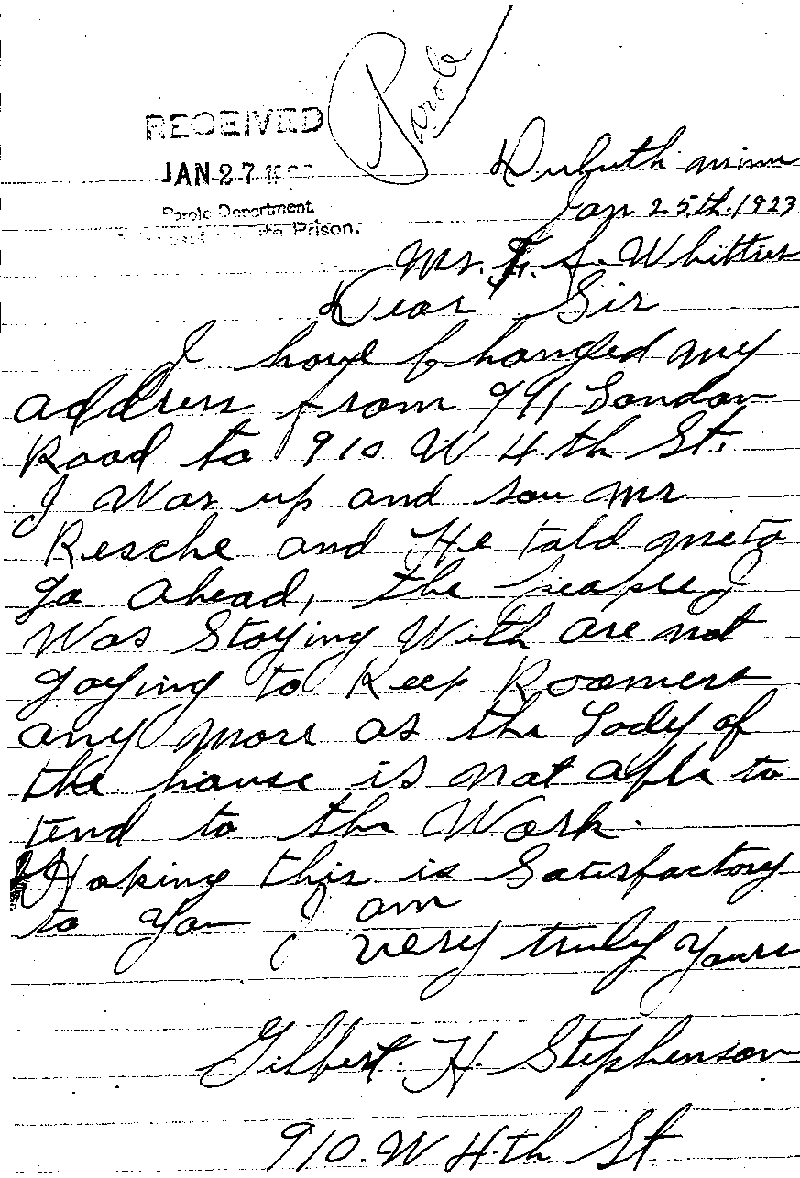 Parole
RECEIVED
JAN 27
Parole Department
Prison.
Duluth Minn
Jan 25th. 1923
Mr. F. A. Whittier
Dear Sir
I have Changed my
address from 991 London
Road to 910 W 4th St.
I Was up and saw Mr
Resche and He told me to
go ahead, the people I
Was Stoying With are not
goying to Keep Roomers
any more as the Lady of
the house is not able to
tend to the Work.
Hoping this is Satisfactory
to you I am
very truly Yours
Gilbert. H. Stephenson
910. W 4th St